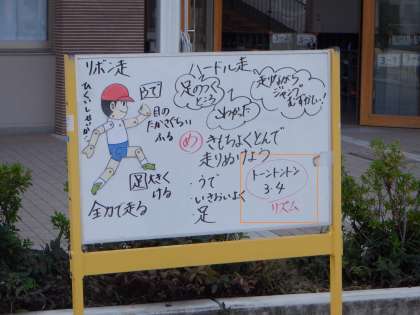 リボン走
ハードル走
うで
目の
たかさぐらい
ふる
足のつく
ところ
とわかった
走りながら
ジャンプ
むずかしい!
め きもちよくとんで
走りぬけよう
足 大きく
ける
全力で走る
・うで
・いきおいよく
・足
トーントントン
3・4
リズム